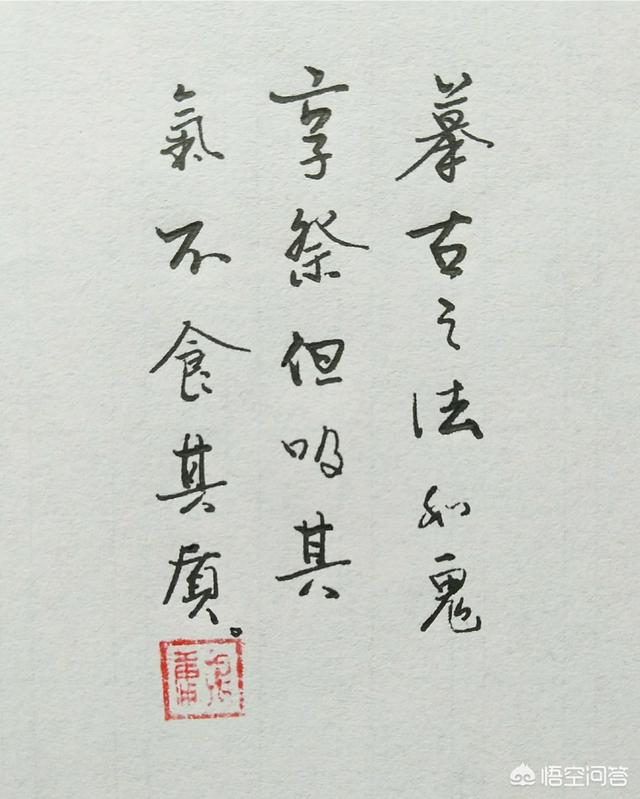 摹古之法如鬼
享祭但吸其
氣不食其质。
悟空问答